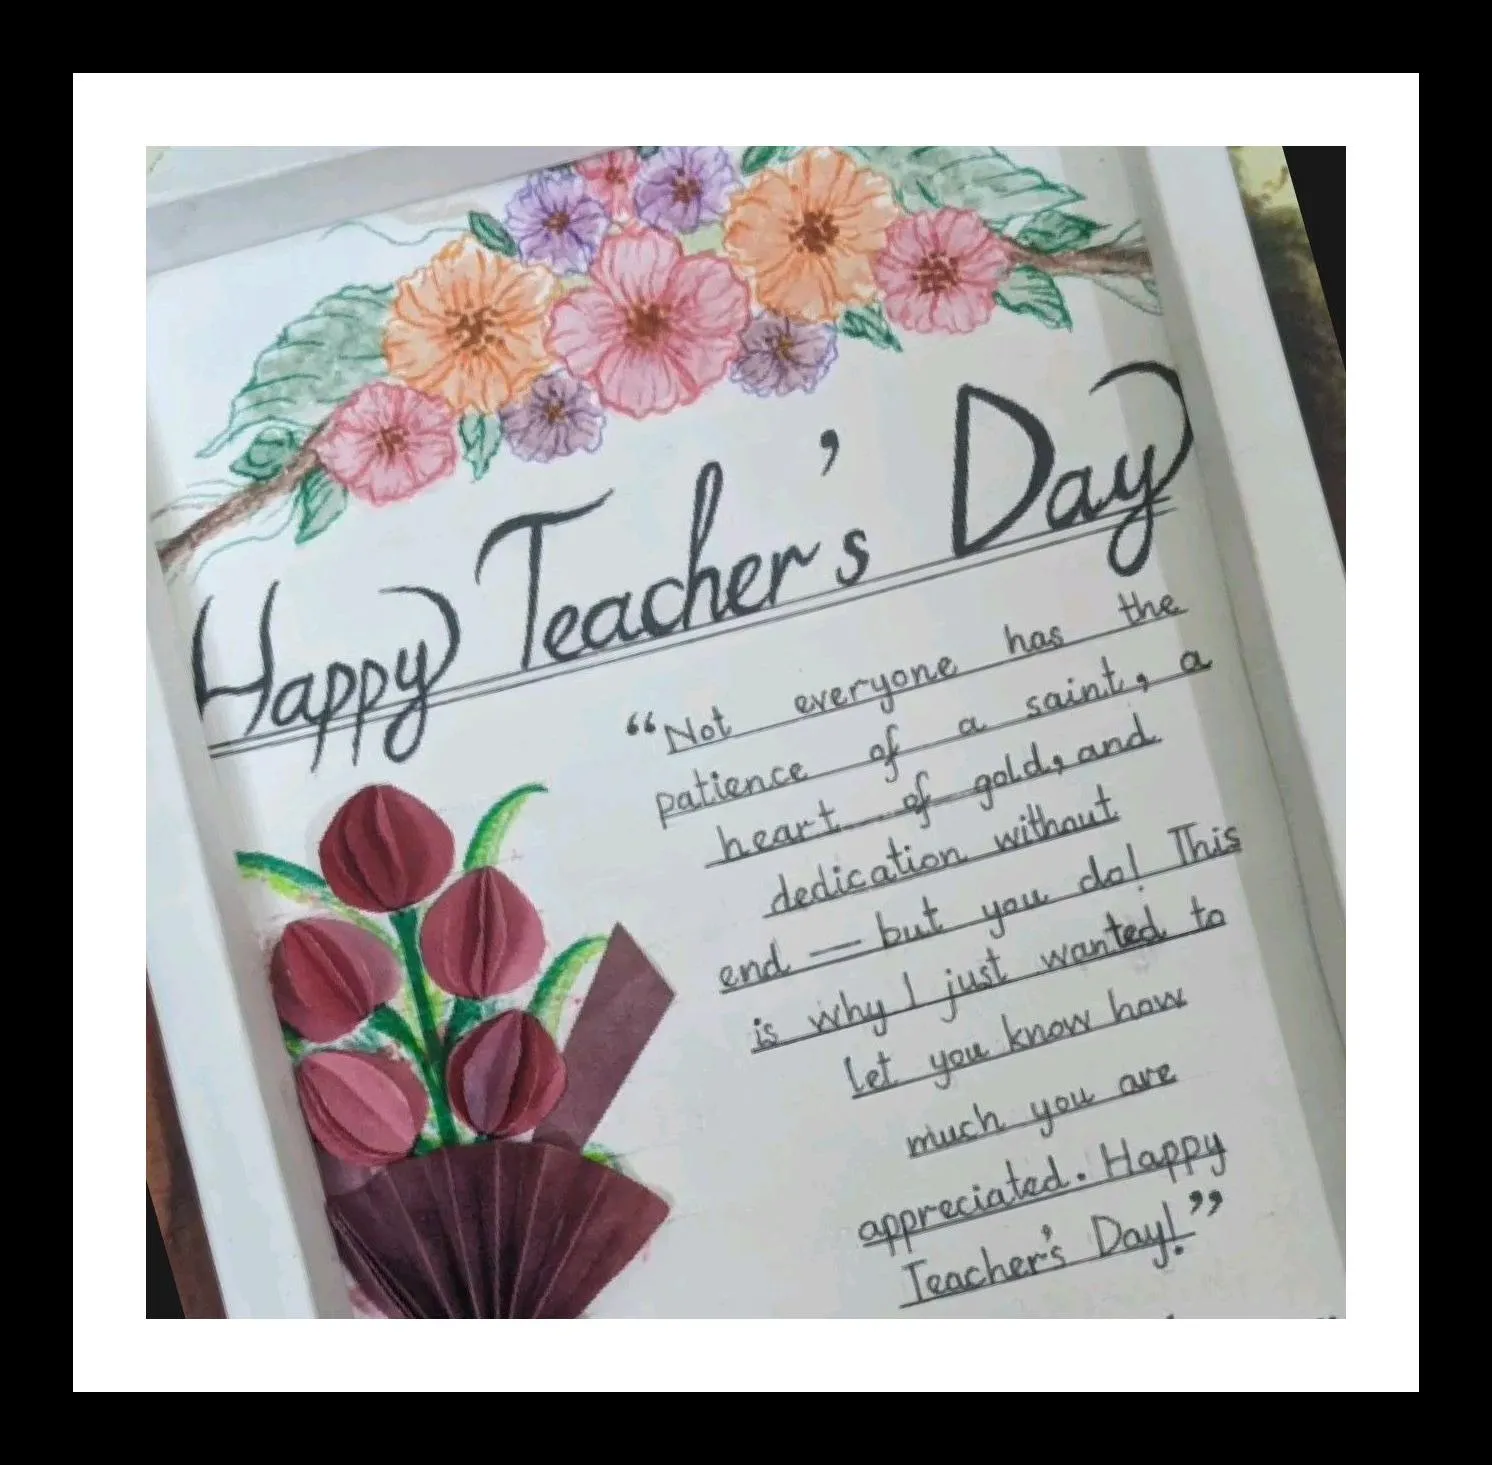 Happy Teacher's Day
“Not everyone has the
patience of a saint, a
heart of gold, and
dedication without
end — but you do! This
is why I just wanted to
let you know how
much you are
appreciated. Happy
Teacher's Day!”